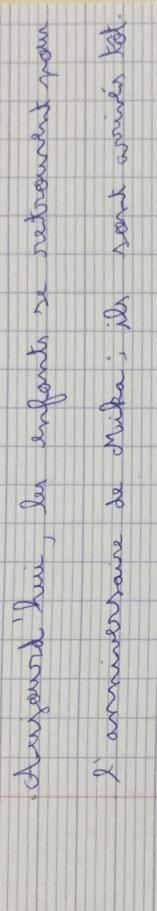 Aujourd'hui, les enfants se retrouvent pour
l'anniversaire de Mika; ils sont arrivés tôt.